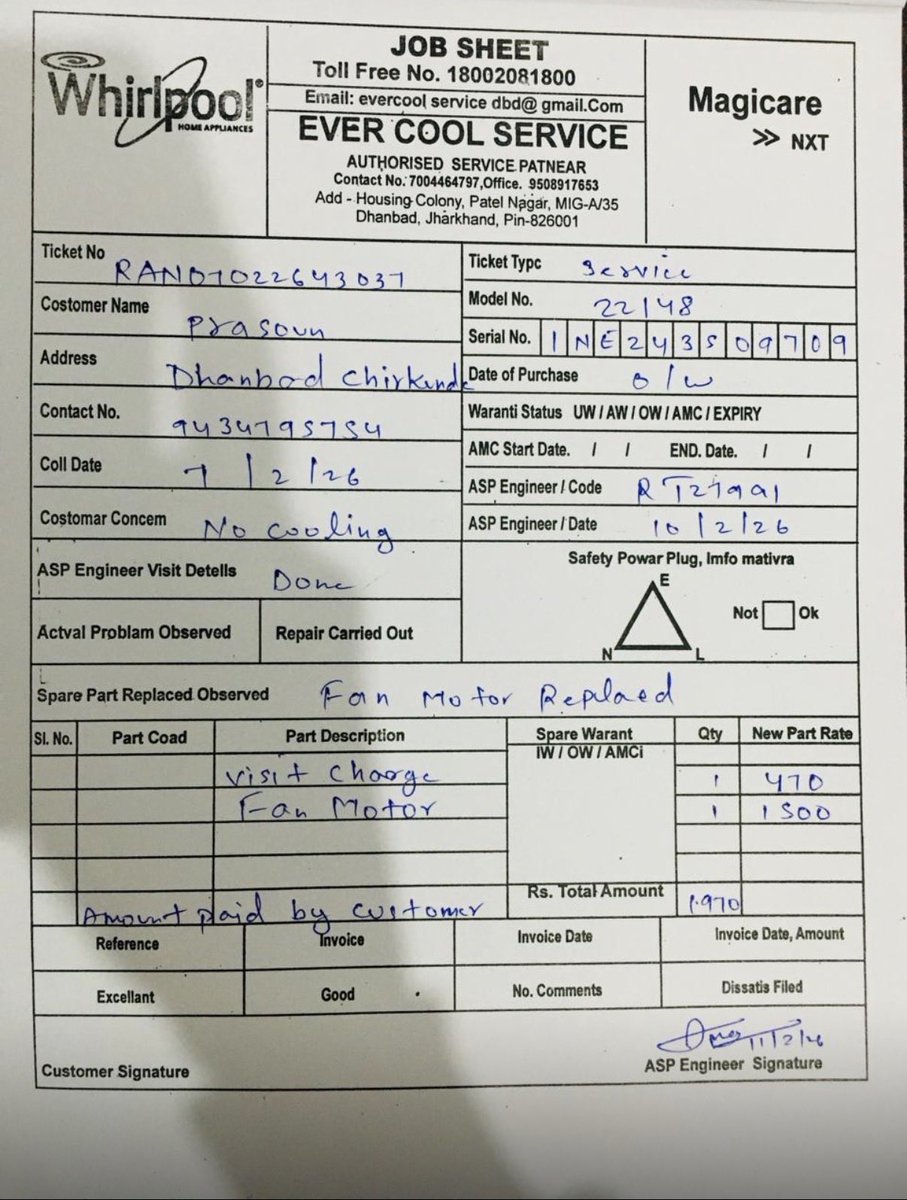 Whirlpool®
HOME APPLIANCES
JOB SHEET
Toll Free No. 18002081800
Email: evercool service dbd@ gmail.Com
EVER COOL SERVICE
AUTHORISED SERVICE PATNEAR
Contact No.: 7004464797,Office. 9508917653
Add - Housing Colony, Patel Nagar, MIG-A/35
Dhanbad, Jharkhand, Pin-826001
Magicare
>> NXT
Ticket No RAN07022643037
Costomer Name Prasoun
Address Dhanbad Chirkunda
Contact No. 9434795754
Coll Date 7/2/26
Costomar Concem No cooling
ASP Engineer Visit Detells Done
Actval Problam Observed
Repair Carried Out
Ticket Typc Service
Model No. 22148
Serial No. INE243509709
Date of Purchase o/w
Waranti Status UW / AW / OW / AMC / EXPIRY
AMC Start Date. / / END. Date. / /
ASP Engineer / Code RT27991
ASP Engineer / Date 10/2/26
Safety Powar Plug, Imfo mativra
E
N L
Not Ok
Spare Part Replaced Observed Fan Motor Replaed
Sl. No. Part Coad Part Description Spare Warant Qty New Part Rate
IW / OW / AMCi
Visit Charge 1 470
Fan Motor 1 1500
Rs. Total Amount 1970
Amount paid by customer
Reference Invoice Invoice Date Invoice Date, Amount
Excellant Good No. Comments Dissatis Filed
11/2/26
Customer Signature ASP Engineer Signature